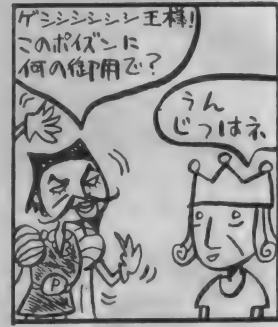 ゲシシシシシシ王様!
このポイズンに
何の御用で?
うん
じつはネ
P